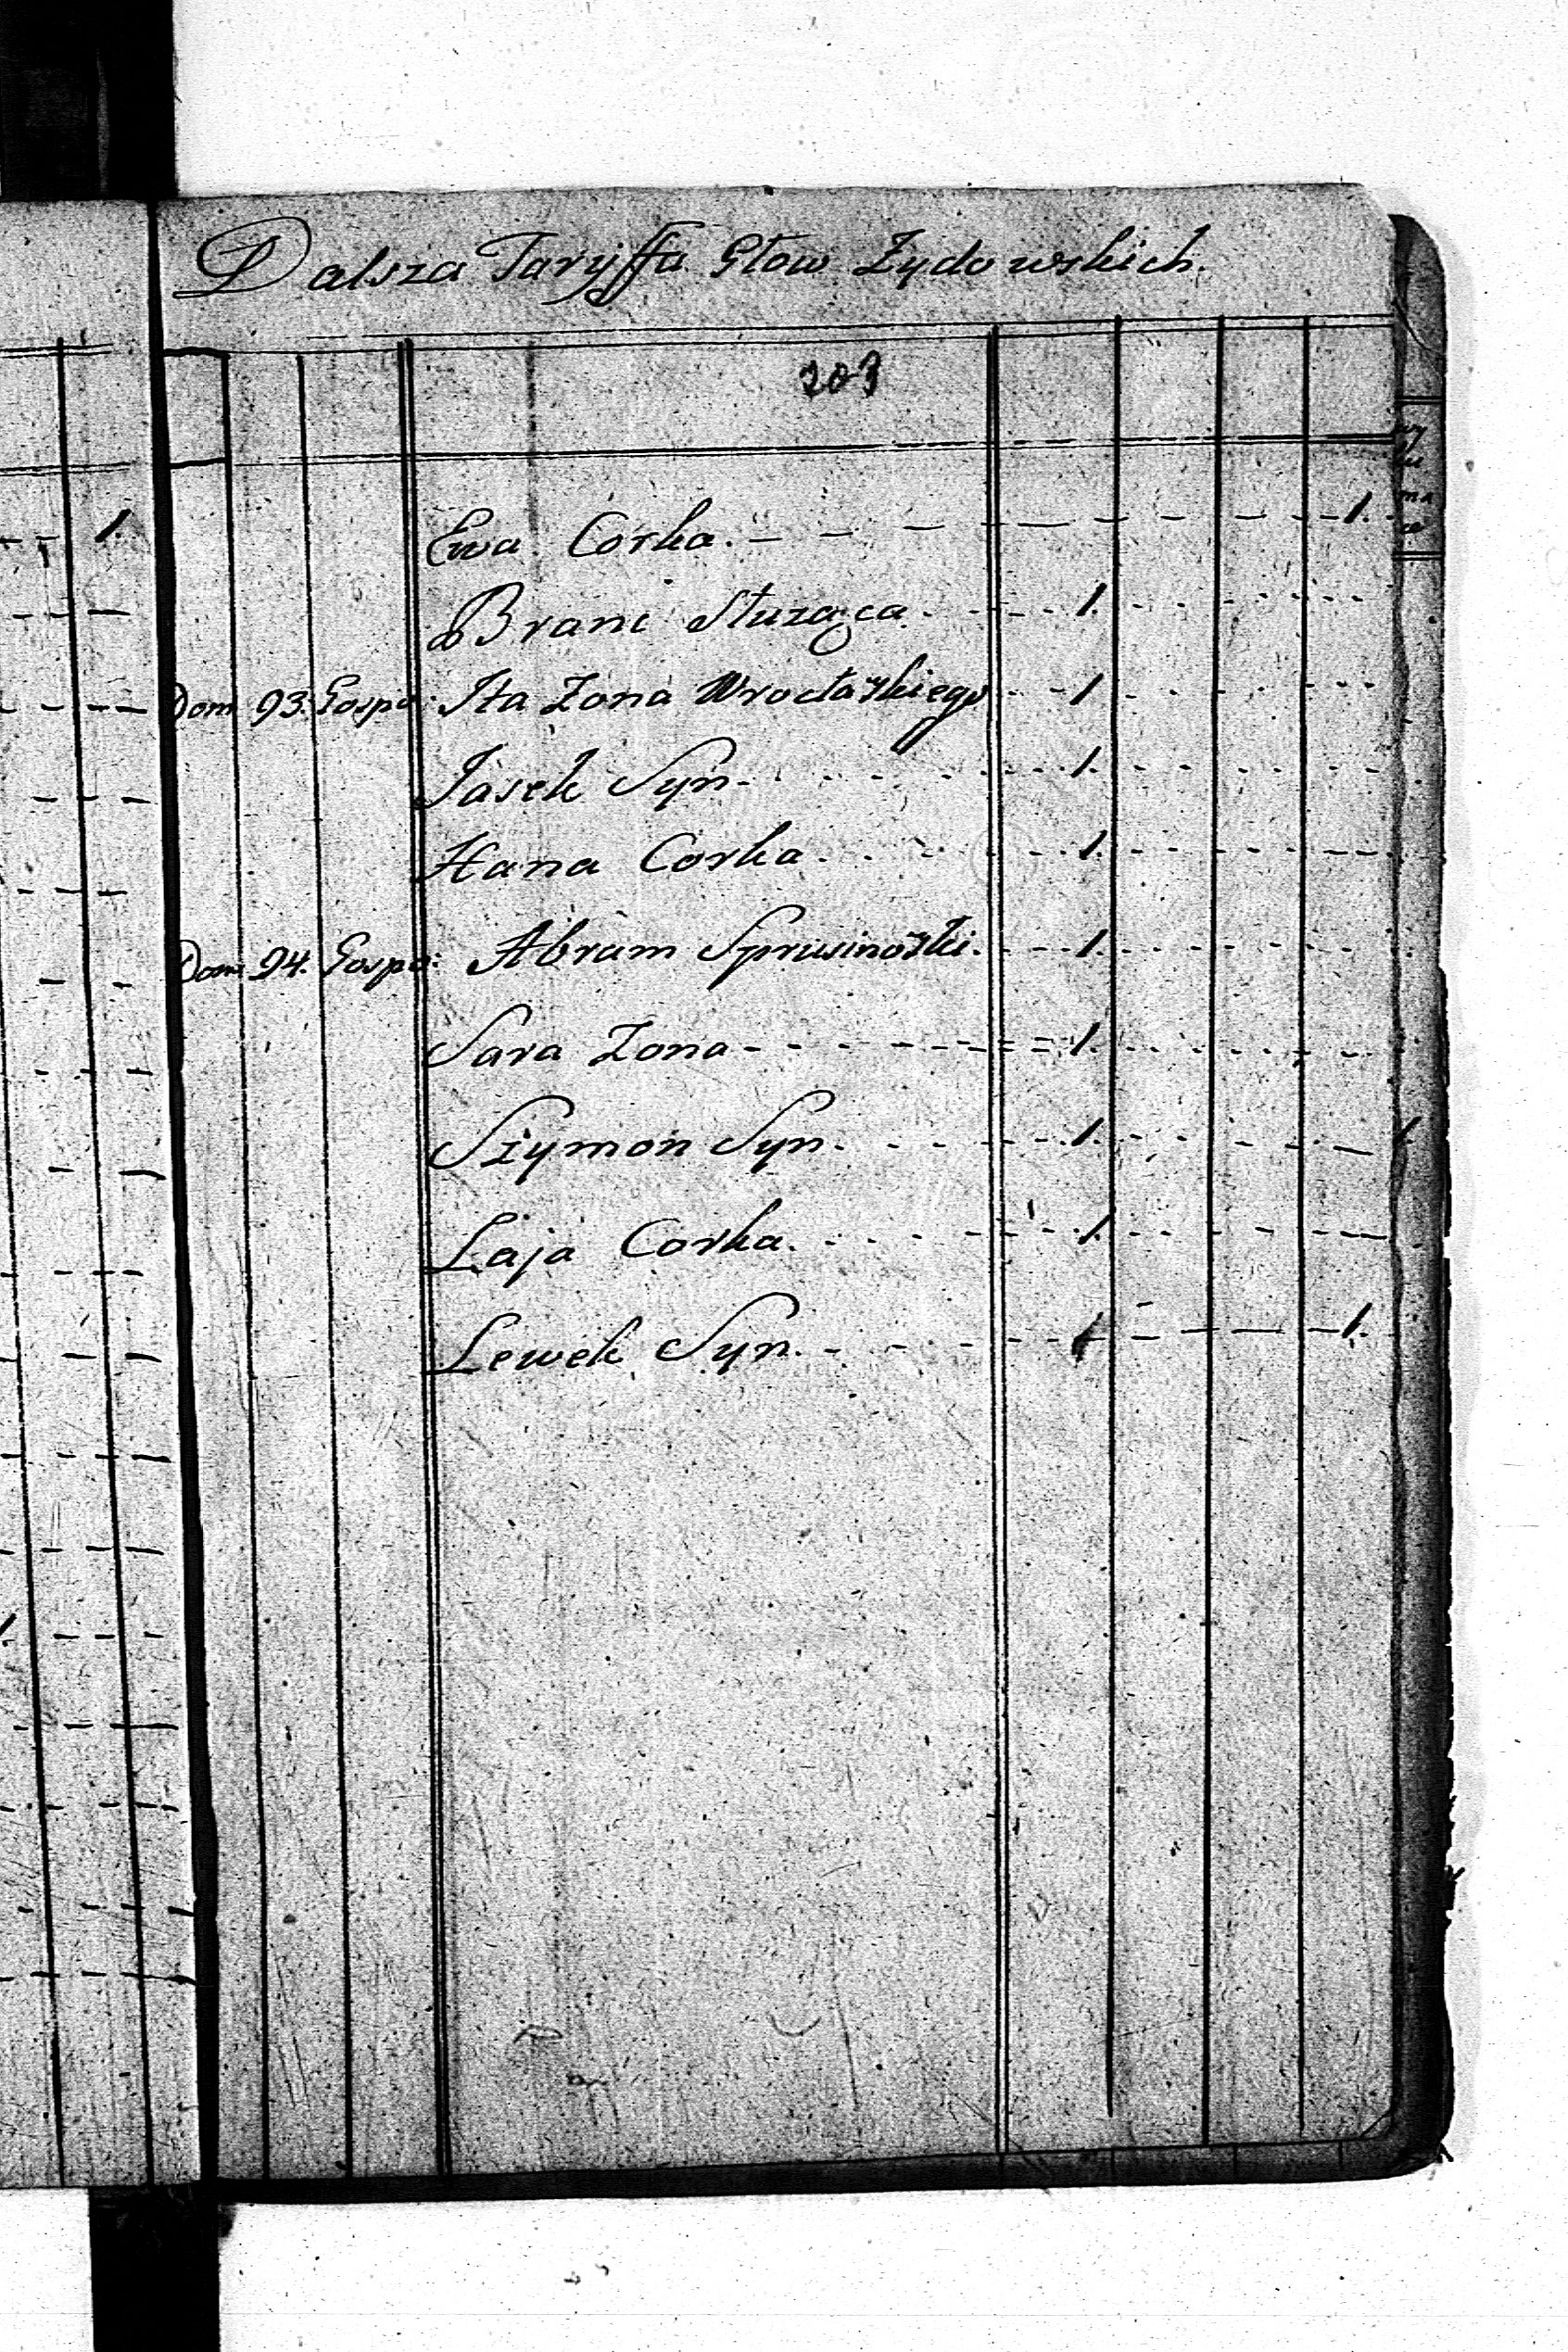 Dalsza Taryffa Głow Zydowskich.
203
Ewa Corka. - - - - - - - - 1.
Brani Służąca. - - 1.
Dom 93. Gospo: Ita Zona Wrocłaskiego - - 1.
Jasek Syn. - - 1.
Hana Corka. - - 1.
Dom 94. Gospo: Abram Sprusinoski. - - 1.
Sara Zona - - - 1.
Szymon Syn. - - 1.
Łaja Corka. - - 1.
Lewek Syn. - - - - - 1.